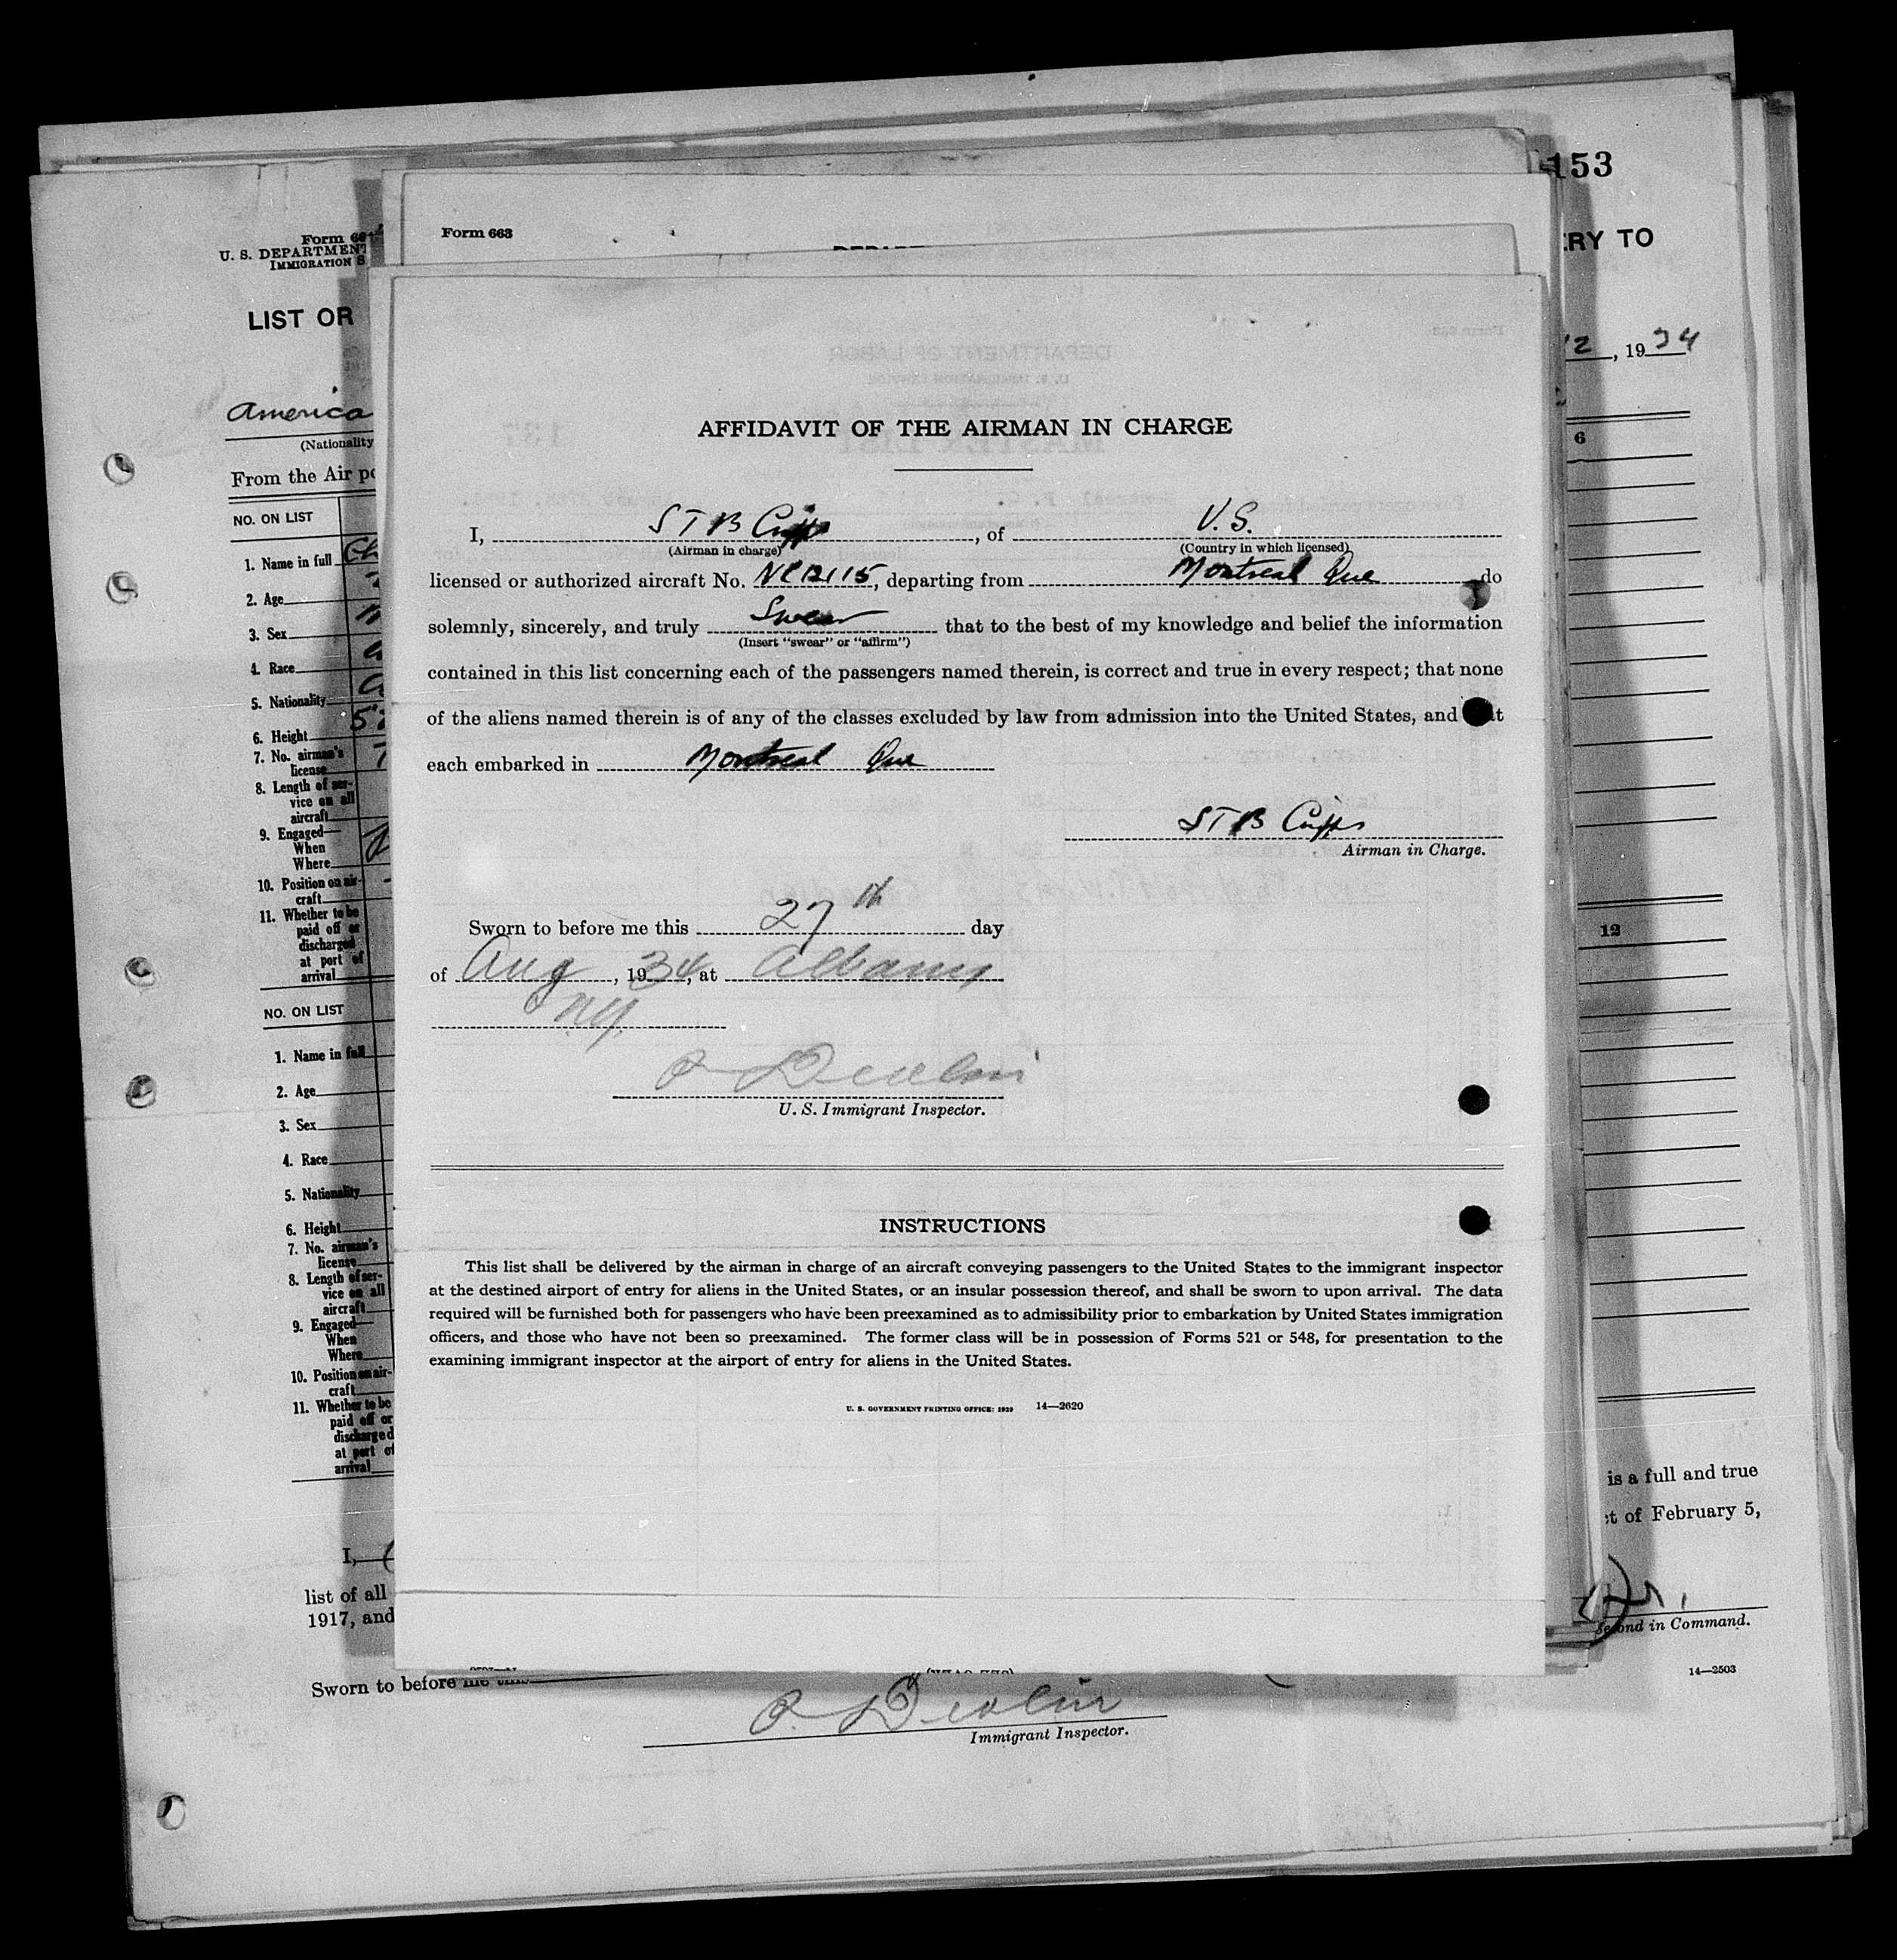 Form 663
153
Form 66
U. S. DEPARTMENT
IMMIGRATION S
ERY TO
LIST OR
12, 1934
America
(Nationality
From the Air po
AFFIDAVIT OF THE AIRMAN IN CHARGE
I, S T B Cripps, of U.S.
(Airman in charge) (Country in which licensed)
licensed or authorized aircraft No. NC12115, departing from Montreal Que do
solemnly, sincerely, and truly Swear that to the best of my knowledge and belief the information
(Insert "swear" or "affirm")
contained in this list concerning each of the passengers named therein, is correct and true in every respect; that none
of the aliens named therein is of any of the classes excluded by law from admission into the United States, and that
each embarked in Montreal Que
S T B Cripps
Airman in Charge.
Sworn to before me this 27th day
of Aug, 1934, at Albany
N.Y.
P Devlin
U. S. Immigrant Inspector.
INSTRUCTIONS
This list shall be delivered by the airman in charge of an aircraft conveying passengers to the United States to the immigrant inspector
at the destined airport of entry for aliens in the United States, or an insular possession thereof, and shall be sworn to upon arrival. The data
required will be furnished both for passengers who have been preexamined as to admissibility prior to embarkation by United States immigration
officers, and those who have not been so preexamined. The former class will be in possession of Forms 521 or 548, for presentation to the
examining immigrant inspector at the airport of entry for aliens in the United States.
U. S. GOVERNMENT PRINTING OFFICE: 1929 14—2620
NO. ON LIST
1. Name in full
2. Age
3. Sex
4. Race
5. Nationality
6. Height
7. No. airman's
license
8. Length of ser-
vice on all
aircraft
9. Engaged—
When
Where
10. Position on air-
craft
11. Whether to be
paid off or
discharged
at port of
arrival
NO. ON LIST
1. Name in full
2. Age
3. Sex
4. Race
5. Nationality
6. Height
7. No. airman's
license
8. Length of ser-
vice on all
aircraft
9. Engaged—
When
Where
10. Position on air-
craft
11. Whether to be
paid off or
discharged
at port of
arrival
6
12
I,
is a full and true
list of all
ct of February 5,
1917, and
Second in Command.
14—2503
Sworn to before me this
P. Devlin
Immigrant Inspector.